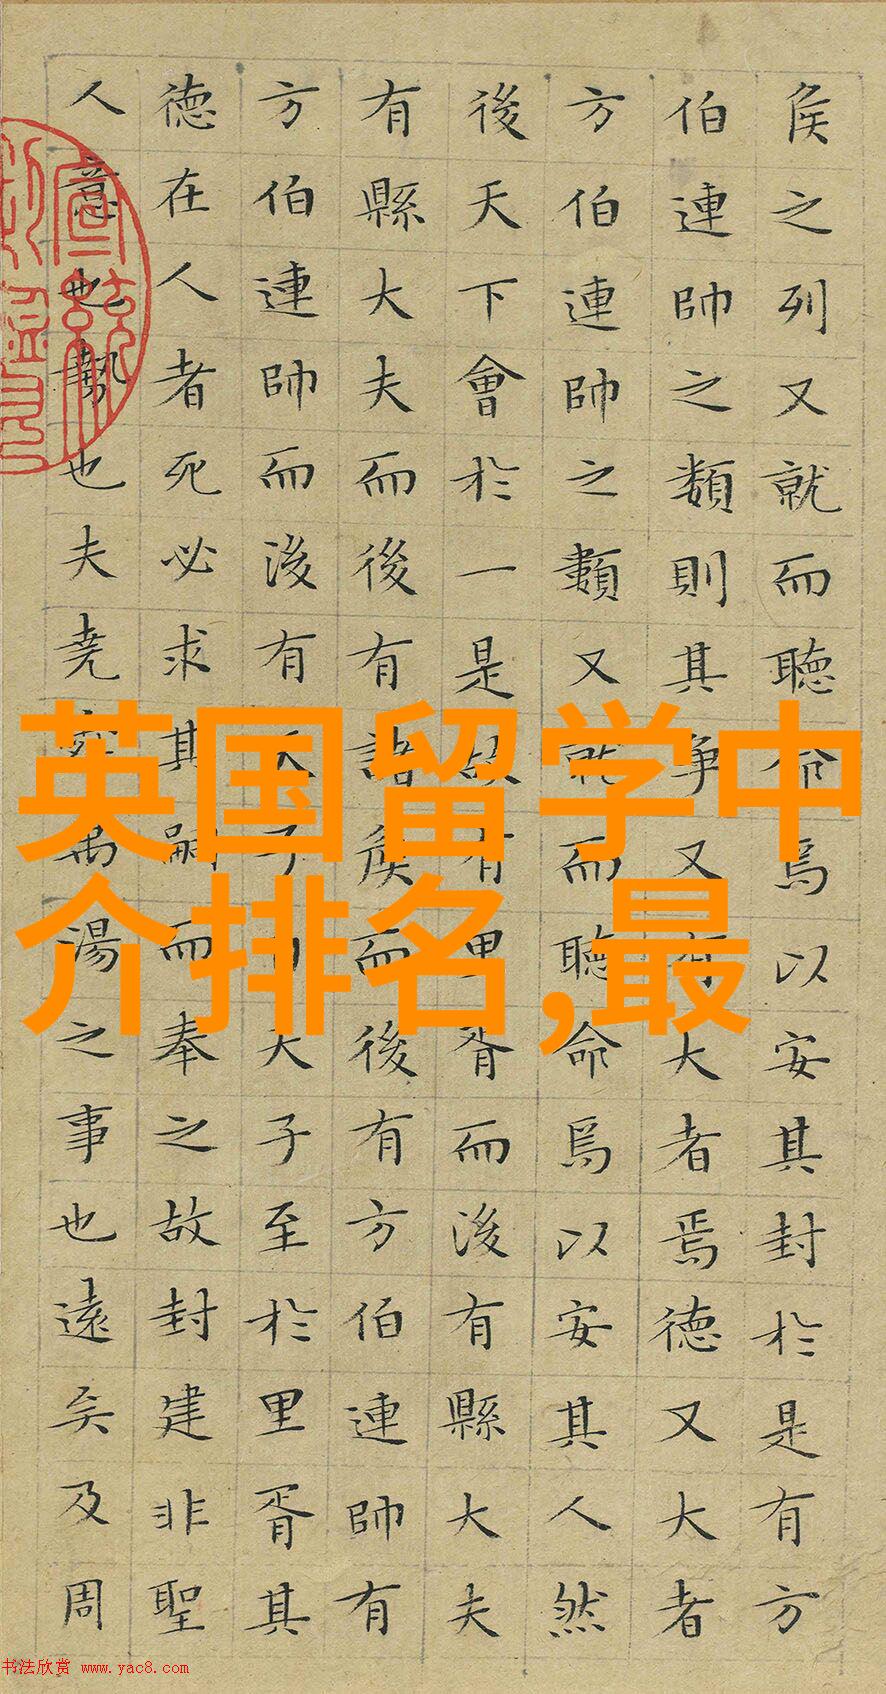 侯之列又就而聽命焉以安其封於是有方
伯連帥之類則其爭又有大者焉德又大者
方伯連帥之類又就而聽命焉以安其人然
後天下會於一是故有里胥而後有縣大夫
有縣大夫而後有諸侯而後有方伯連帥有
方伯連帥而後有天子自天子至於里胥其
德在人者死必求其嗣而奉之故封建非聖
人意也勢也夫堯舜禹湯之事也遠矣及周
英国留学中
介排名,最
书法欣赏 www.yac8.com